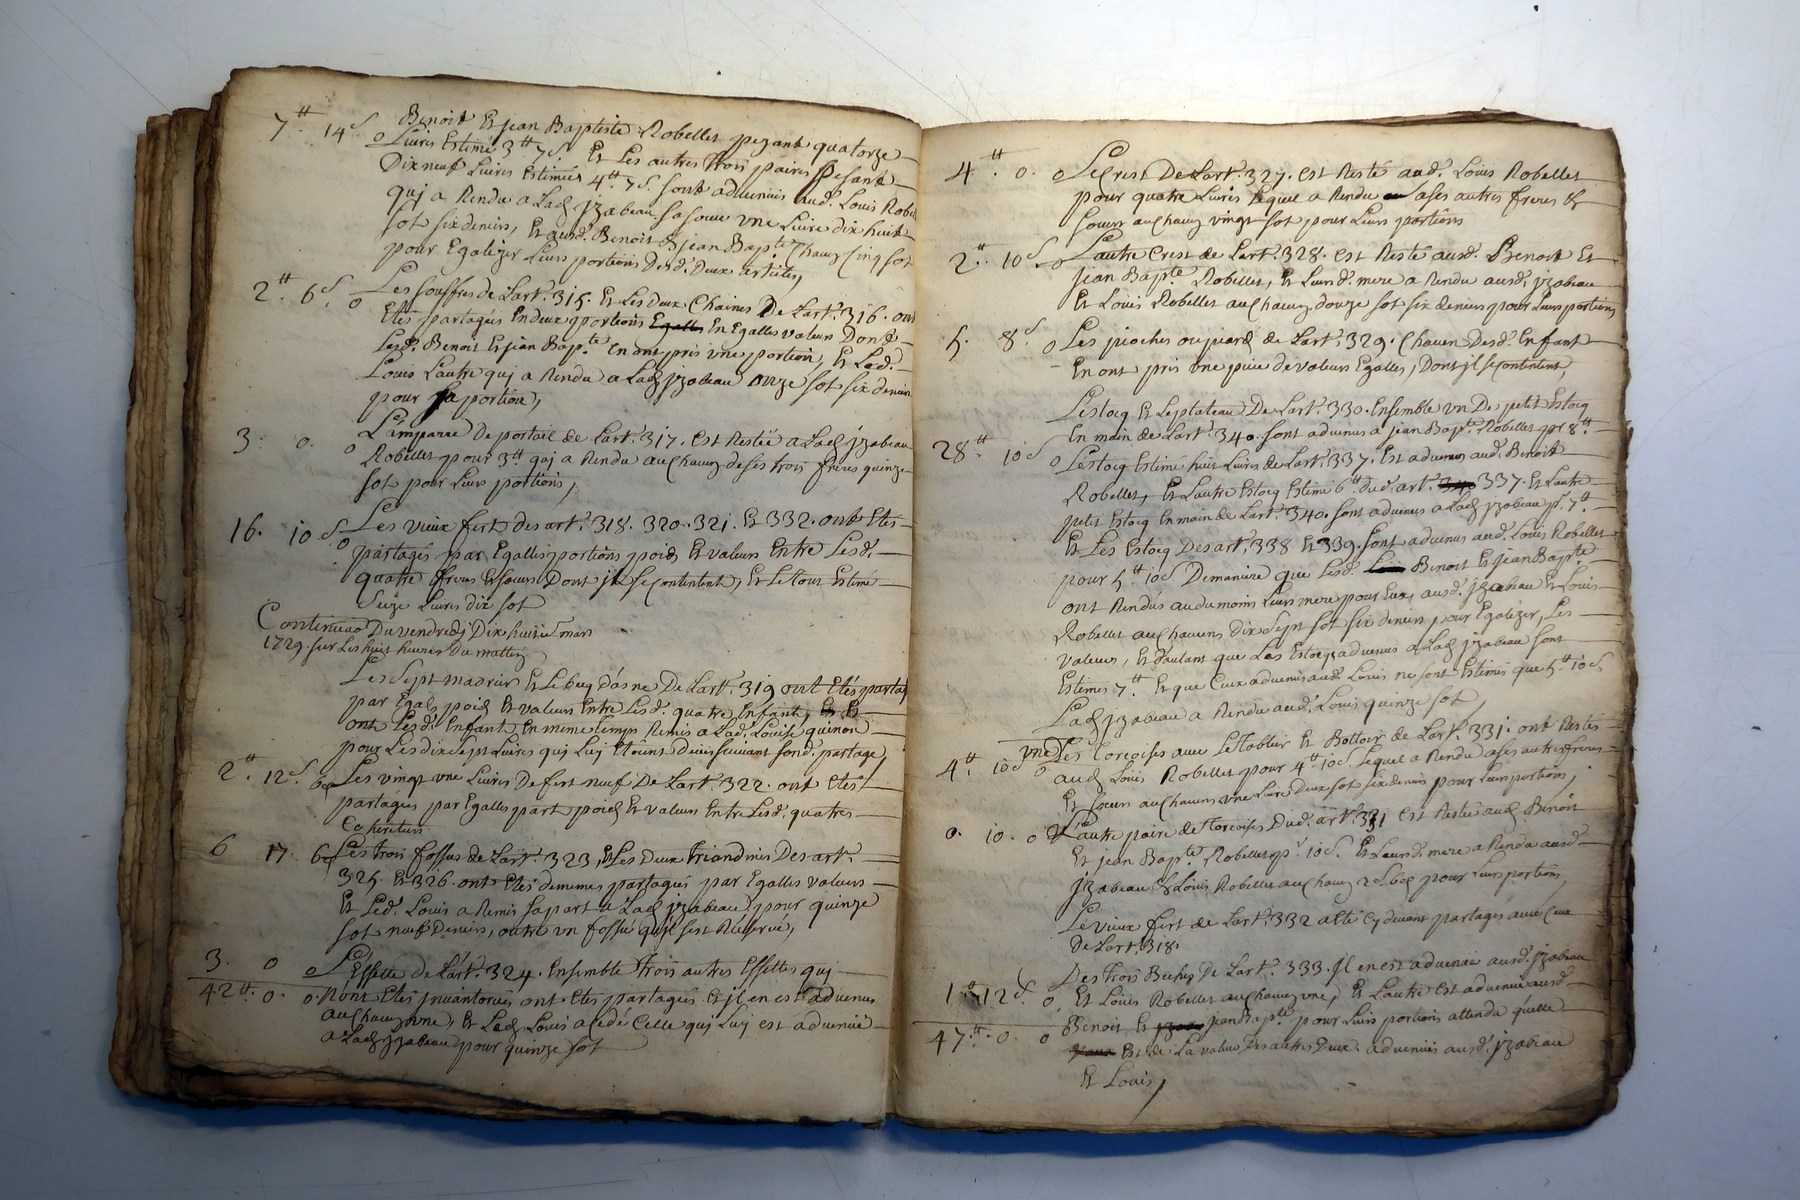 Benoit Et jean Baptiste Robellet pezant quatorze
7ᵗᵗ. 14ˢ. o Livres Estimé 3ᵗᵗ 7ˢ. Et Les autres trois paires pesant
Dix neuf Livres Estimées 4ᵗᵗ. 7ˢ. sont advenues aud. Louis Robel
quj a Rendu a Lad. jzabeau sa soeur vne Livre dix huit
sot six deniers, Et ausd. Benoit & jean Bapᵗᵉ. Chacuns Cinq sot
pour Egalizer Leurs portions Desd. Deux articles,
2ᵗᵗ. 6ˢ. o Les souffres de Lart. 315. Et Les Deux Chaines De Lart. 316. ont
Etés partagées En deux portions En Egalles valeurs Dont
Lesd. Benoit Et jean Bapᵗᵉ. En ont pris vne portion, Et Led.
Louis Lautre quj a Rendu a Lad. jzabeau onze sot six deniers
pour sa portion,
3. 0. o L'amparre De portail de Lart. 317. est Restée a Lad. jzabeau
Robellet pour 3ᵗᵗ quj a Rendu a uChacuns de ses trois freres quinze
sot pour Leurs portions,
16. 10ˢ. o Les vieux fert des art. 318. 320. 321. Et 332. ont Etés
partagés par Egalles portions poid Et valeurs Entre Lesd.
quatre freres Et soeurs Dont jls se contentent, Et Le tout Estimé
Seize Livres dix sot
Continuaõ Du vendredj Dix huit mars
1729. sur Les huit heures Du mattin
Les sept madriers Et Le becq d'asne De Lart. 319 ont Etés partag
par Egals poid Et valeurs Entre Lesd. quatre Enfant,
ont Lesd. Enfant En même temps Remis a Lad. Louise quinon
pour Les dix sept Livres quj Luj Etoient Deues suivant son d. partage,
2ᵗᵗ. 12ˢ. 6d Les vingt vne Livres De fert neuf De Lart. 322. ont Etés
partagées par Egalles part poid Et valeurs Entre Lesd. quatres
Coheritiers
6 17. 6d Les trois fossus de Lart. 323, Et Les Deux triandines Des art.
325. Et 326. ont Etés demémes partagés par Egalles valeurs
Et Led. Louis a Remis sa part a Lad. jzabeau pour quinze
sot neuf Deniers, outre vn fossu quil sest Réservé,
3. 0 o L'Essette de Lart. 324. Ensemble trois autres Essettes quj
42ᵗᵗ. 0. o. Nont Etés jnvantoriées ont Etés partagées Et jl en est advenus
a uChacuns vne, Et Led. Louis a cédé Celle quj Luj est advenüe
a Lad. jzabeau pour quinze sot
4ᵗᵗ. 0. o Le Crest De Lart. 327. est Resté aud. Louis Robellet
pour quatre Livres Lequel a Rendu a ses autres freres &
soeurs a uChacuns vingt sot pour Leurs portions
2ᵗᵗ. 10ˢ. o Lautre Crest de Lart. 328. est Resté ausd. Benoit Et
jean Bapᵗᵉ Robellet, Et Leursd. mere a Rendu ausd. jzabeau
Et Louis Robellet a uChacuns douze sot six deniers pour Leurs portions
5. 8ˢ. o Les pioches ou piard de Lart. 329. Chacun Desd. Enfant
En ont pris vne piece de valeurs Egalles, Dont jl se contentent,
Lestocq Et Le plateau De Lart. 330. Ensemble vn De petit Estocq
En main de Lart. 340. sont advenus a jean Bapᵗᵉ. Robellet pʳ 8ᵗᵗ.
28ᵗᵗ. 10ˢ o Lestocq Estimé huit Livres de Lart. 337. est advenus aud. Benoit
Robellet, Et Lautre Estocq Estimé 6ᵗᵗ. dud. art. 337. Et Lautre
petit Estocq En main de Lart. 340. sont advenus a Lad. jzabeau pʳ. 7ᵗᵗ.
Et Les Estocq Des art. 338 Et 339. sont advenus aud. Louis Robellet
pour 5ᵗᵗ 10ˢ Demaniere que Lesd. Benoit Et jean Bapᵗᵉ
ont Rendus au du moins Leurs mere pour Eux, ausd. jzabeau Et Louis
Robellet a uChacuns dix sept sot six deniers pour Egalizer, Les
valeurs, Et d'autant que Les Estocq advenus a Lad. jzabeau sont
Estimés 7ᵗᵗ. Et que Ceux advenus aud. Louis ne sont Estimés que 5ᵗᵗ 10ˢ.
Lad. jzabeau a Rendu aud. Louis quinze sot,
4ᵗᵗ. 10ˢ o vne Des torcoises avec Le tablier Et Bottoir de Lart. 331. ont Restés
aud. Louis Robellet pour 4ᵗᵗ 10ˢ. Lequel a Rendu a ses autres freres
Et soeurs a uChacuns vne Livre Deux sot six deniers pour Leurs portions,
0. 10. o L'autre paire de torcoises Dud. art. 331 est Restée aud. Benoit
Et jean Bapᵗᵉ. Robellet pʳ. 10ˢ. Et Leursd. mere a Rendu ausd.
jzabeau Et Louis Robellet a uChacuns 2ˢ 6d pour Leurs portions,
Le vieux fert de Lart. 332 a Eté Cy devant partagé avec Ceux
De Lart. 318.
1. 12ˢ. o Des trois Beches De Lart. 333. jl en est advenue ausd. jzabeau
Et Louis Robellet a uChacuns vne, Et Lautre est advenüe ausd.
47ᵗᵗ. 0 o Benoit Et jean Bapᵗᵉ pour Leurs portions attendu quelle
Est de La valeur Des autres Deux advenues ausd. jzabeau
Et Louis,